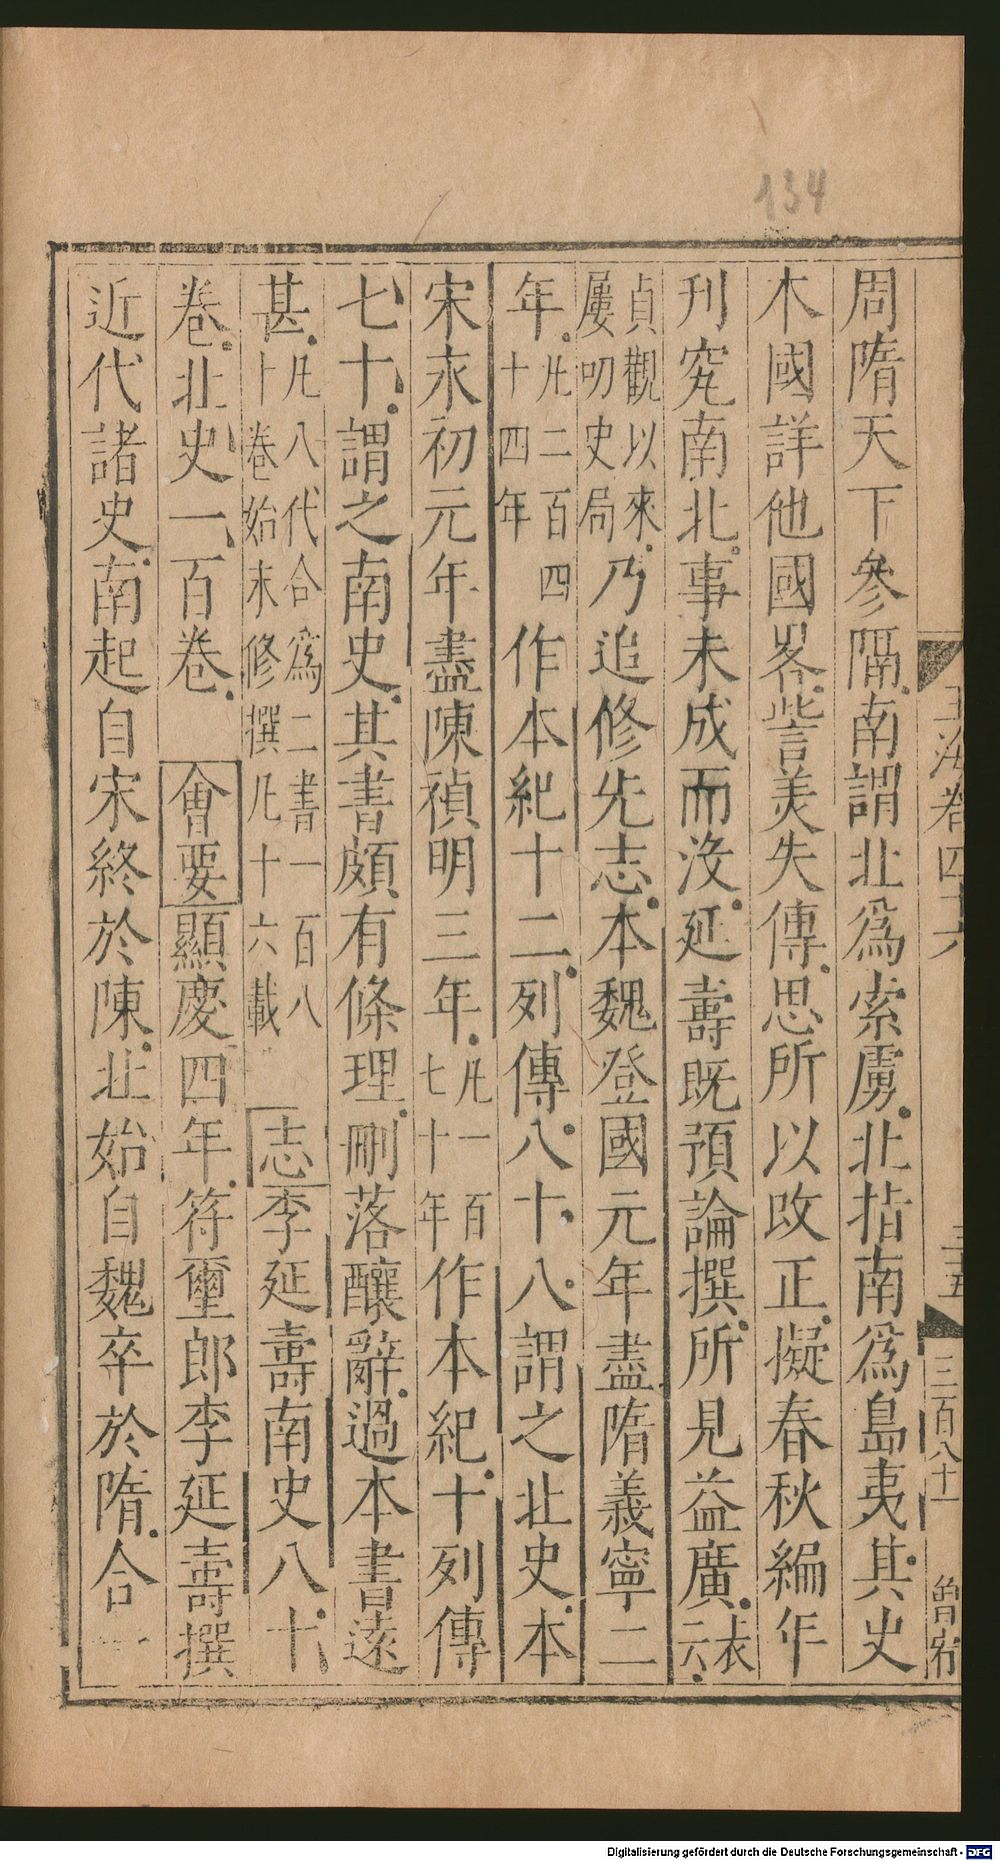 134
玉海卷四十六
三五
三百八十一
周隋天下參隔南謂北爲索虜北指南爲島夷其史
木國詳他國畧訾美失傳思所以改正擬春秋編年
刋究南北事未成而沒延壽旣預論撰所見益廣表云
貞觀以來屢叨史局乃追修先志本魏登國元年盡隋義寧二
年凡二百四十四年作本紀十二列傳八十八謂之北史本
宋永初元年盡陳禎明三年凡一百七十年作本紀十列傳
七十謂之南史其書頗有條理刪落釀辭過本書遠
甚凡八代合爲二書一百八十卷始末修撰凡十六載 志李延壽南史八十
卷北史一百卷 會要顯慶四年符璽郎李延壽撰
近代諸史南起自宋終於陳北始自魏卒於隋合一
Digitalisierung gefördert durch die Deutsche Forschungsgemeinschaft - DFG